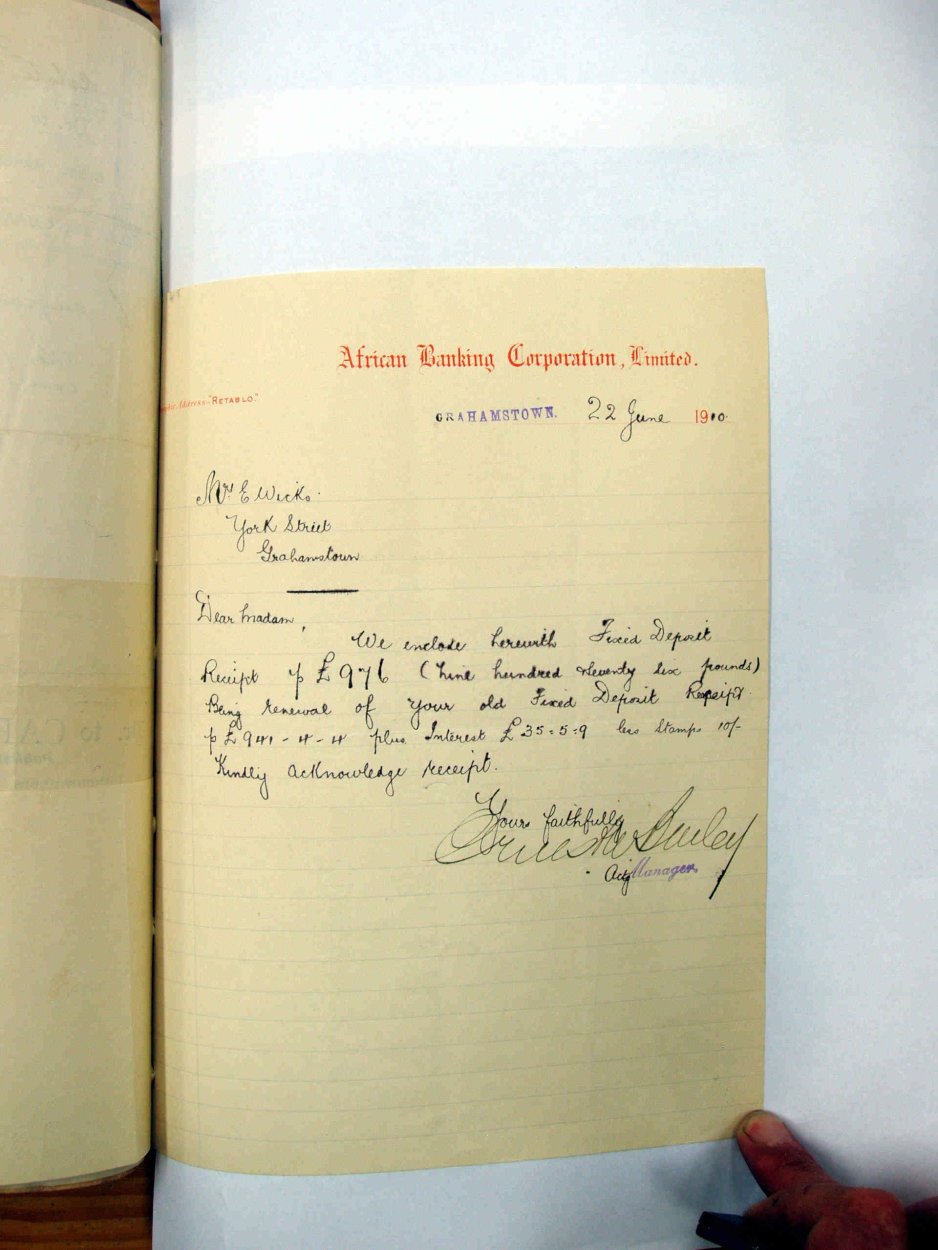 African Banking Corporation, Limited.
Address-"RETABLO."
GRAHAMSTOWN. 22 June 1910
Mrs E Wicks.
York Street
Grahamstown
Dear Madam,
We enclose herewith Fixed Deposit
Receipt p £976 (Nine hundred seventy six pounds)
Being renewal of your old Fixed Deposit Receipt
p £941-4-4 plus Interest £35:5:9 less Stamps 10/-
Kindly acknowledge receipt.
Yours faithfully
Actg Manager.